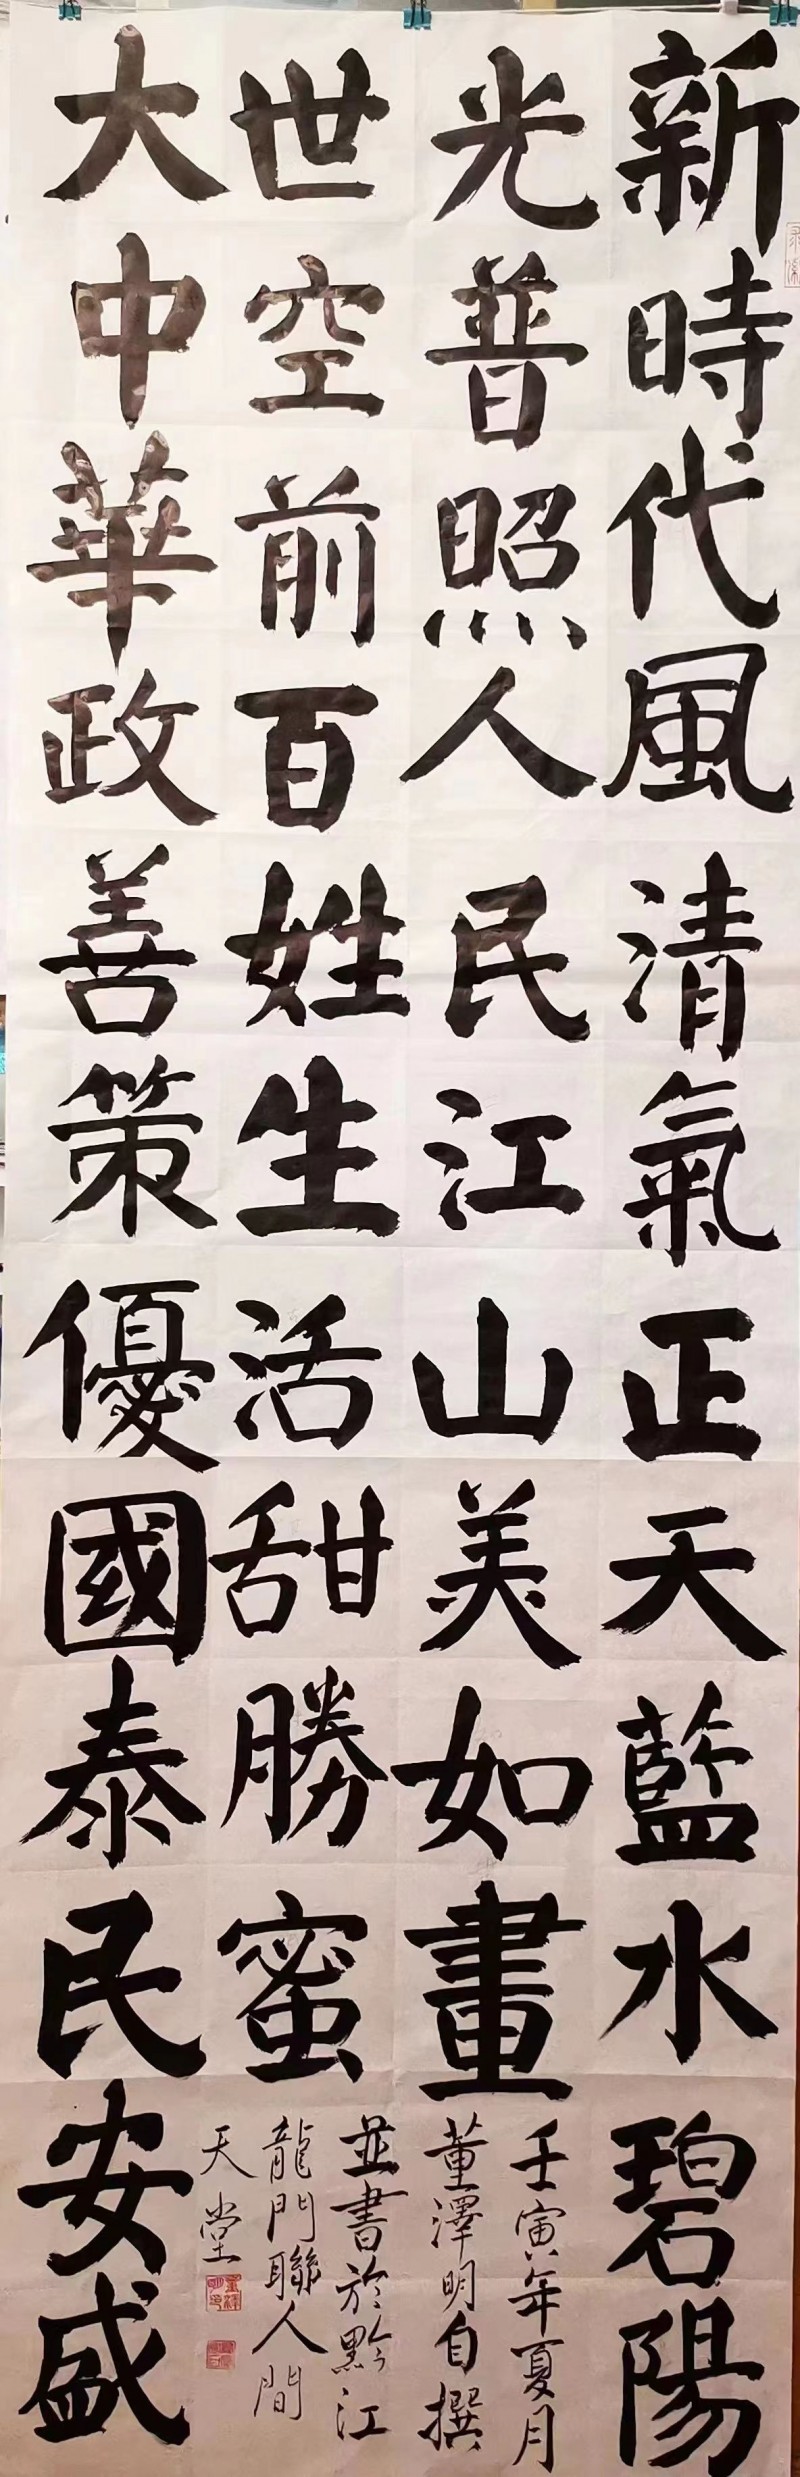 新時代風清氣正天藍水碧陽
光普照人民江山美如畫
大中華政善策優國泰民安盛
世空前百姓生活甜勝蜜
壬寅年夏月
董澤明自撰
並書於黔江
龍門聯人間
天堂